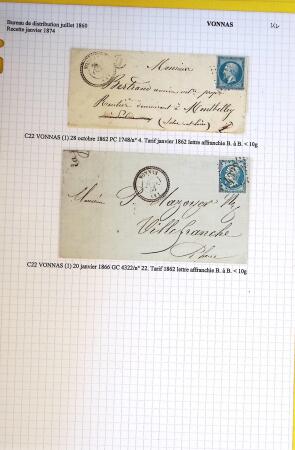 Bureau de distribution juillet 1860
VONNAS
Recette janvier 1874
Monsieur
Bertrand
Rentier demeurant à
C22 VONNAS (1) 28 octobre 1862 PC 1748/n° 4. Tarif janvier 1862 lettre affranchie B. à B. < 10g
VONNAS
Monsieur P. Mazoyer
Villefranche
Rhône
C22 VONNAS (1) 20 janvier 1866 GC 4322/n° 22. Tarif 1862 lettre affranchie B. à B. < 10g